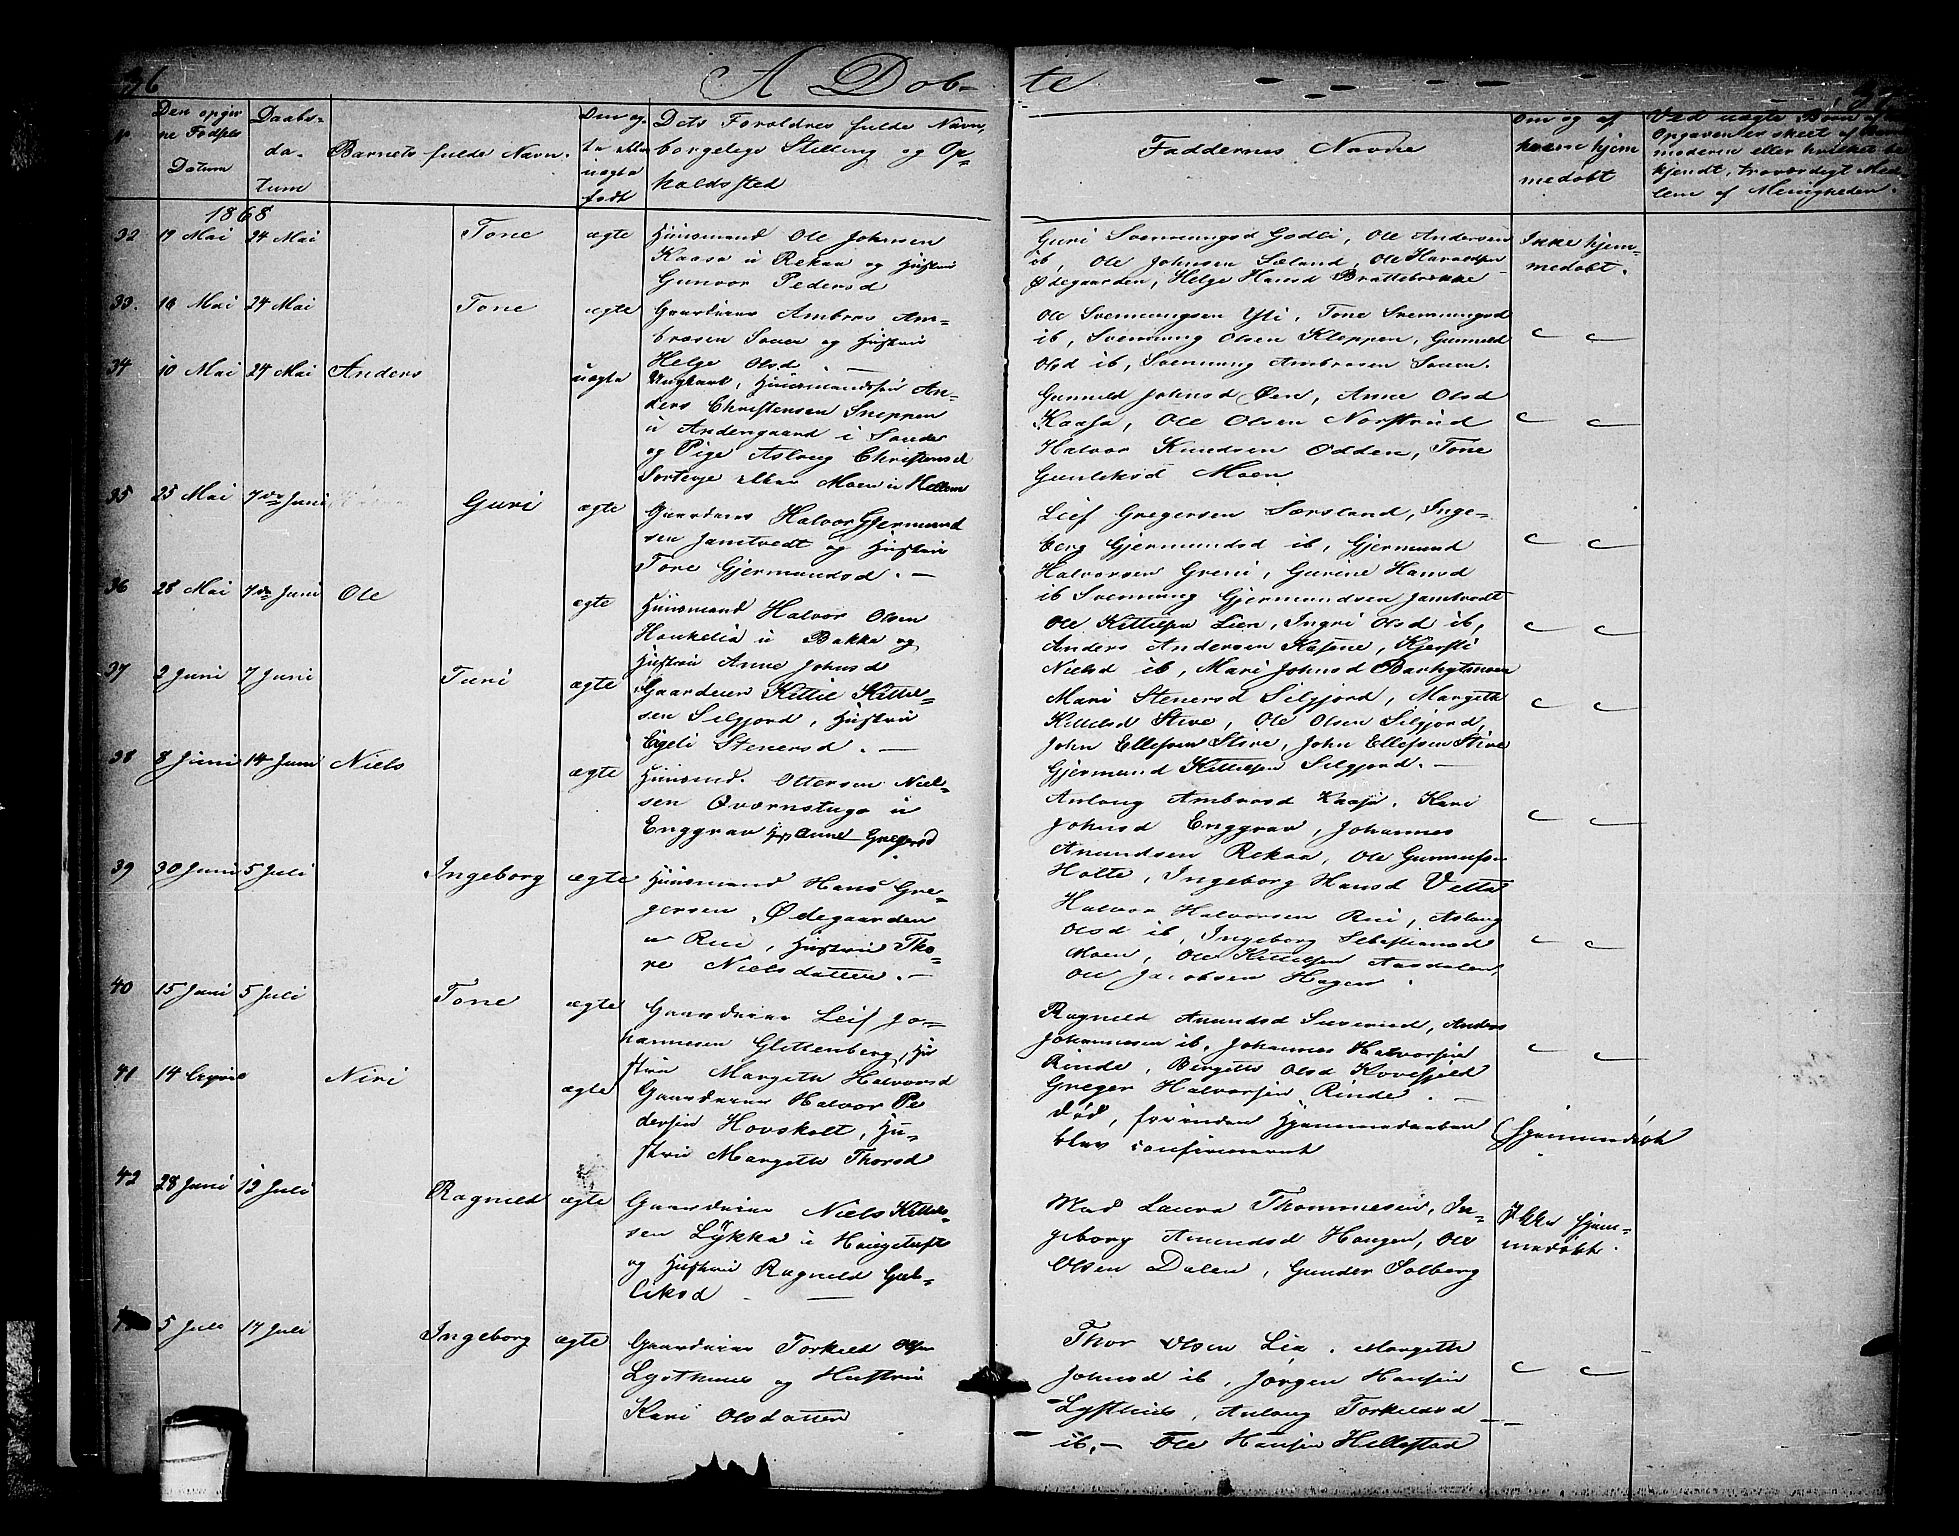 36
A Døb-
te
Den opgiv
ne Fødsels
Datum
Daabs-
da-
tum
Barnets fulde Navn.
Den æg-
te eller
uægte
født
Dets Foreldres fulde Navn,
borgelige Stilling og Op-
holdssted
Faddernes Navne
Om og af
hvem hjem
medøbt
Ved uægte Børn
Opgaven er skeet af Barne
moderen eller hvilket be
kjendt, troværdigt Med-
lem af Menigheden.
1868
32 17 Mai 24 Mai Tone ægte
Huusmand Ole Johnsen
Kaasa u Rekaa og Hustrue
Gunvor Pedersd
Guri Svennungsd Godli, Ole Andersen
ib, Ole Johnsen Sæland, Ole Haraldsen
Ødegaarden, Helge Hansd Brattebrekke
Ikke hjem-
medøbt.
33. 10 Mai 24 Mai Tone ægte
Gaardeier Ambros Am-
brosen Sauer og Hustrue
Helge Olsd
Ole Svennungsen Yli, Tone Svennungsd
ib, Svennung Olsen Kleppen, Gunnild
Olsd ib, Svennung Ambrosen Sauer.
34 10 Mai 24 Mai Anders uægte
Ungkarl, Huusmandssøn An-
ders Christensen Sneppen
u Andengaard i Saude
og Pige Aslaug Christensd
Sorteye eller Moen u Hellem
Gunnild Johnsd Øen, Anne Olsd
Kaasa, Ole Olsen Norstrud
Halvor Knudsen Odden, Tone
Gunleksd Moen
35 25 Mai 7de Juni Guri ægte
Gaardeier Halvor Gjermund
sen Jamtvedt og Hustrue
Tone Gjermundsd. —
Lief Gregersen Særsland, Inge-
borg Gjermundsd ib, Gjermund
Halvorsen Greni, Gurine Hansd
ib Svennung Gjermundsen Jamtvedt
36 28 Mai 7de Juni Ole ægte
Huusmand Halvor Olsen
Haukelia u Bakka og
Hustrue Anne Johnsd
Ole Kittilsen Lien, Ingri Olsd ib,
Anders Andersen Kasene, Kjersti
Nielsd ib, Mari Johnsd
37 2 Juni 7 Juni Turi ægte
Gaardeier Kittil Kittel-
sen Seljord, Hustrue
Egeli Stenersd. —
Mari Stenersd Seljord, Margith
Kittelsd Stive, Ole Olsen Seljord,
John Ellefsen Stive, John Ellefsen Stive
Gjermund Kittilsen Seljord. —
38 8 Juni 14 Juni Niels ægte
Huusmd. Otter­sen Niel-
sen Qværnstuga u
Enggrav H Anne Gregersd
Aslaug Ambrosd Kaasa, Kari
Johnsd Enggrav, Johannes
Amundsen Rekaa, Ole Gunnufsen
Holte, Ingeborg Hansd Vetta
39 30 Juni 5 Juli Ingeborg ægte
Huusmand Hans Gre-
gersen Ødegaarden
u Rui, Hustrue Tho-
re Nielsdatter. —
Halvor Halvorsen Rui, Aslaug
Olsd ib, Ingeborg Sebastiansd
Moen, Ole Kittilsen Aasdalen,
Ole Jacobsen Hagen.
40 15 Juni 5 Juli Tone ægte
Gaardeier Leif Jo-
hannesen Glittenberg, Hu
strue Margith Halvorsd
Ragnild Amundsd, Anders
Johannesen ib, Johannes Halvorsen
Rinde, Birgitte Olsd Kovefjeld
Greger Halvorsen Rinde. —
41 14 April Niri ægte
Gaardeier Halvor Pe
dersen Hovskolt, Hu-
strue Margith Thorsd
død, forinden Hjemmedaaben
blev confirmeret
Hjemmedøbt
42 28 Juni 12 Juli Ragnild ægte
Gaardeier Niels Kittel-
sen Lykka i Haugetuft
og Hustrue Ragnild Gul-
liksd —
Mad Laura Thommesen, In-
geborg Amundsd Haugen, Ole
Olsen Dalen, Gunder Solberg
Ikke hjem-
medøbt.
5 Juli 14 Juli Ingeborg ægte
Gaardeier Torkild Olsen
Lysthuus og Hustrue
Kari Olsdatter
Thor Olsen Lia, Margith
Johnsd ib, Jørgen Hansen
Lysthuus, Aslaug Torkildsd
ib, — Ole Hansen Hellestad